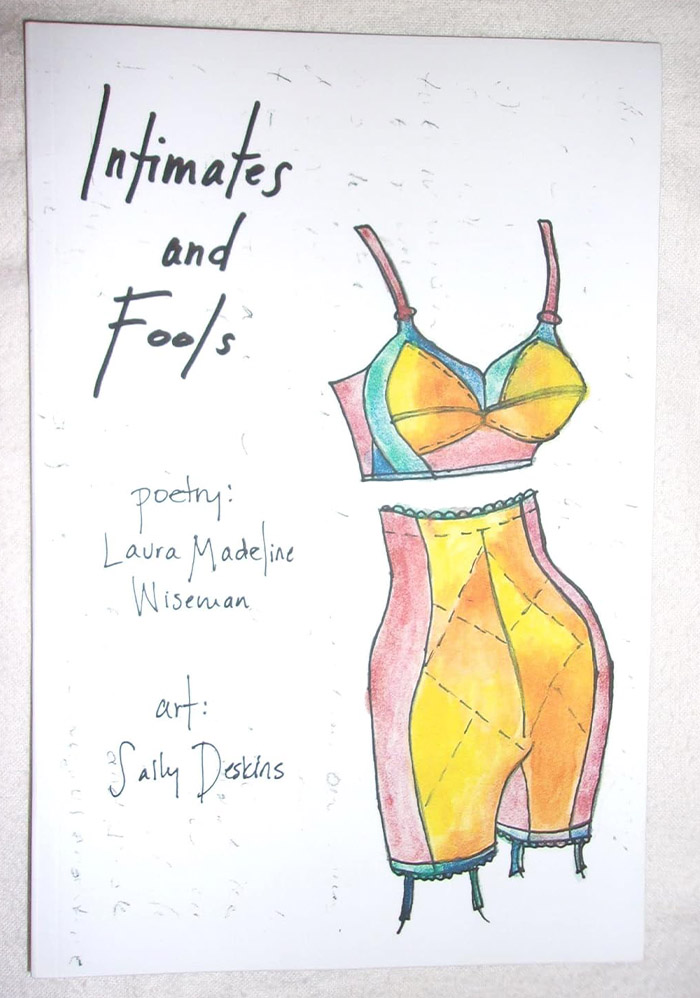 Intimates
and
Fools
poetry:
Laura Madeline
Wiseman
art:
Sally Deskins